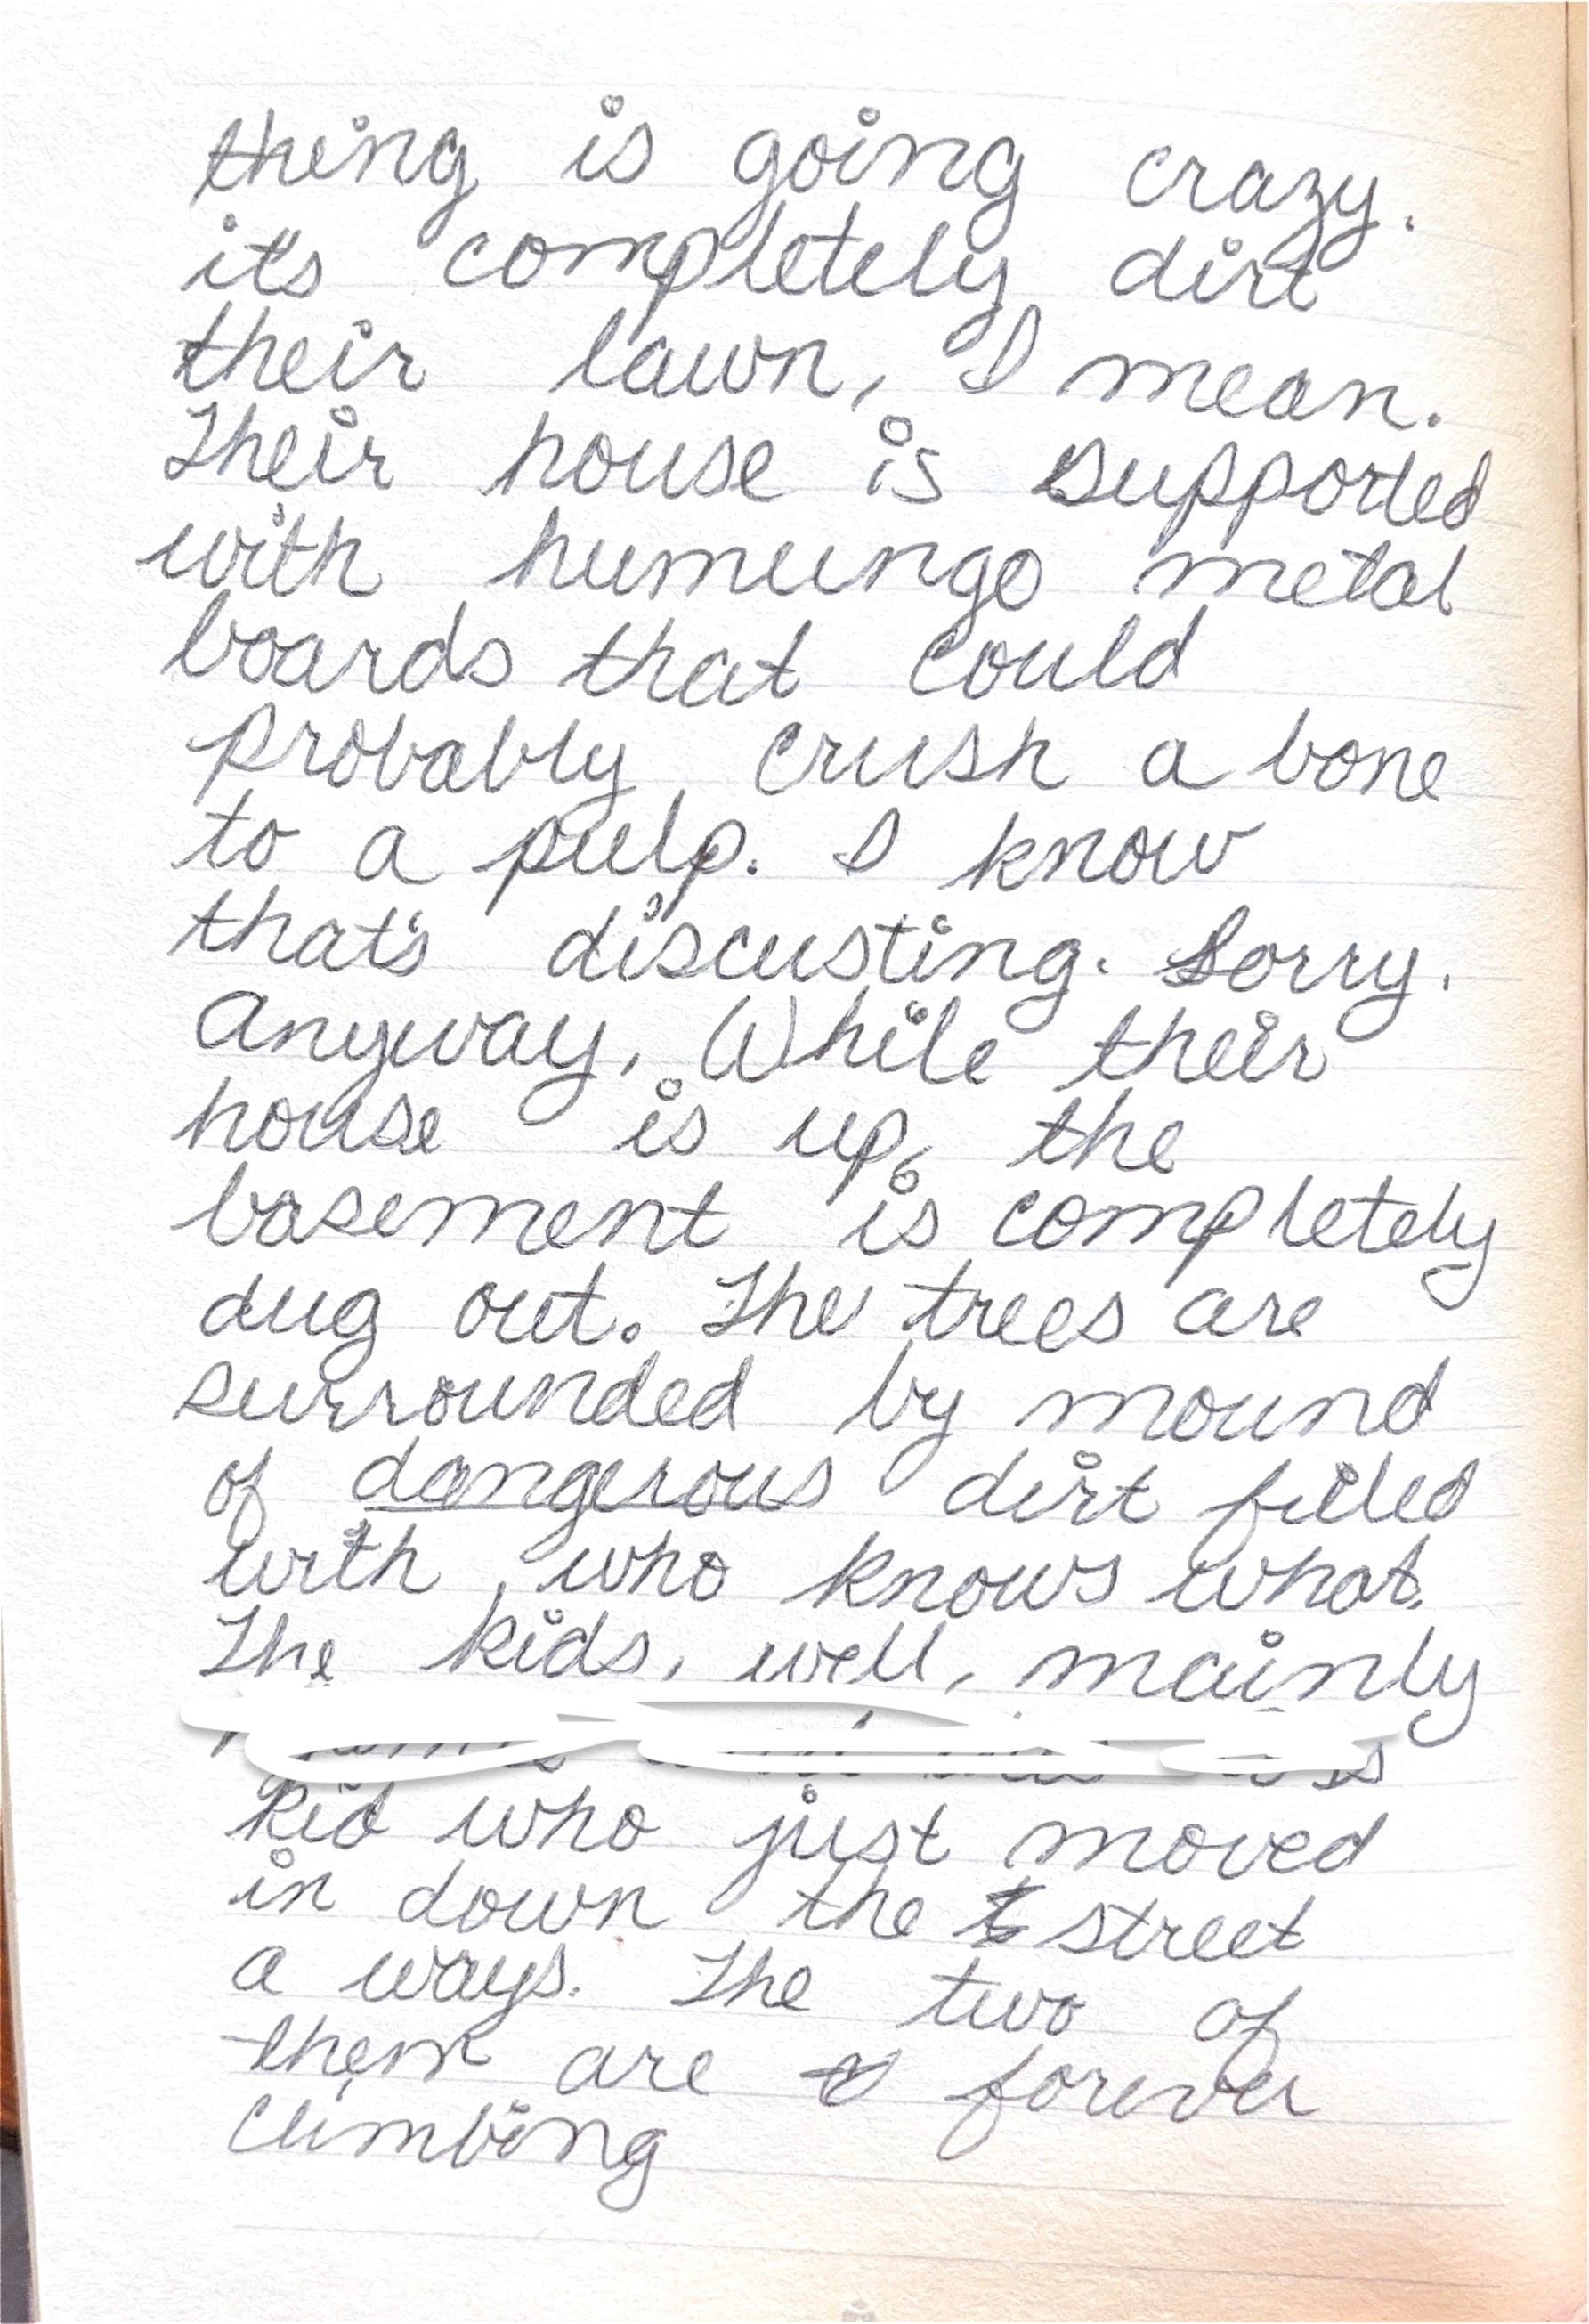 thing is going crazy.
it's completely dirt
their lawn, I mean.
Their house is supported
with humungo metal
boards that could
probably crush a bone
to a pulp. I know
that's discusting. Sorry.
Anyway, While their
house is up, the
basement is completely
dug out. The trees are
surrounded by mound
of dangerous dirt filled
with, who knows what.
The kids, well, mainly
kid who just moved
in down the street
a ways. The two of
them are forever
climbing